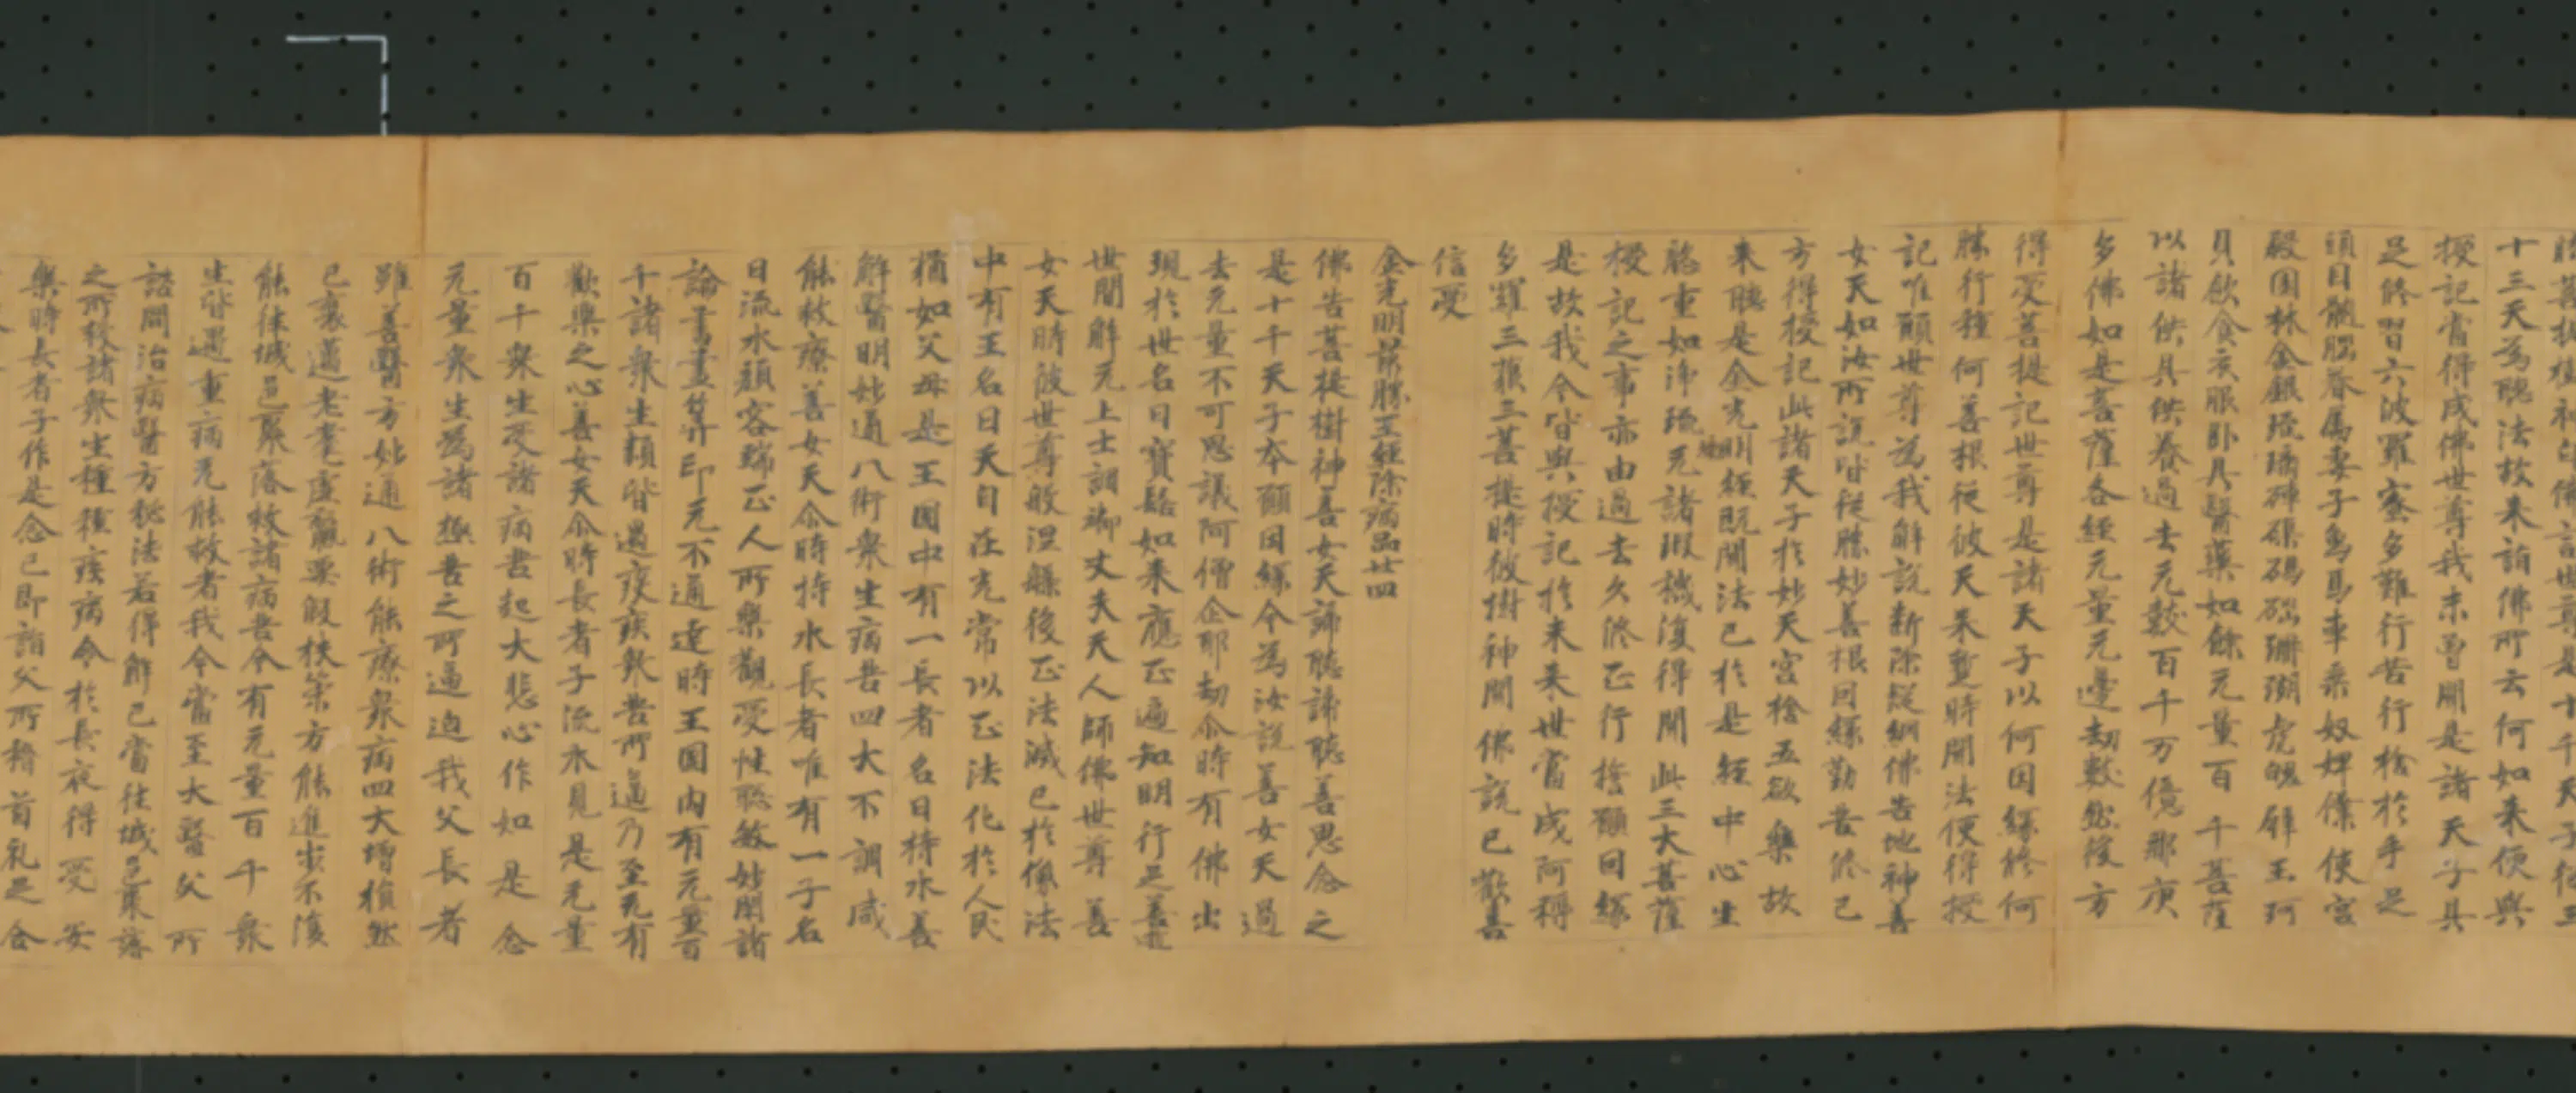 十三天為聽法故来詣佛所云何如来便與
授記當得成佛世尊我未曾聞是諸天子具
足修習六波羅蜜多難行苦行捨於手足
頭目髓腦眷属妻子象馬車乗奴婢僕使宫
殿園林金銀琉璃硨磲碼碯珊瑚虎魄璧玉珂
貝飲食衣服卧具醫藥如餘无量百千菩薩
以諸供具供養過去无數百千万億那庾
多佛如是菩薩各經无量无邊劫數然後方
得受菩提記世尊是諸天子以何因緣修何
勝行種何善根從彼天来暫時聞法便得授
記唯願世尊為我解說斷除疑網佛告地神善
女天如汝所說皆從勝妙善根因緣勤苦修已
方得授記此諸天子於妙天宫捨五欲樂故
来聽是金光明經既聞法已於是經中心生
慇重如淨琉无諸瑕穢復得聞此三大菩薩
授記之事亦由過去久修正行擔願因緣
是故我今皆與授記於来来世當成阿耨
多羅三藐三菩提時彼樹神聞佛說已歡喜
信受
金光明最勝王經除病品廿四
佛告菩提樹神善女天諦聽諦聽善思念之
是十千天子夲願因緣今為汝說善女天過
去无量不可思議阿僧企耶劫尒時有佛出
現於世名曰寶髻如来應正遍知明行足善逝
世間解无上士調御丈夫天人師佛世尊善
女天時彼世尊般涅槃後正法滅已於像法
中有王名曰天自在光常以正法化於人民
猶如父母是王國中有一長者名曰持水善
解醫明妙通八術衆生病苦四大不調咸
能救療善女天尒時持水長者唯有一子名
曰流水顔容端正人所樂觀受性聡敏妙閑諸
論書畫筭印无不通達時王国内有元量百
千諸衆生類皆遇疫疾衆苦所逼乃至无有
歡樂之心善女天尒時長者子流水見是无量
百千衆生受諸病苦起大悲心作如是念
无量衆生爲諸極苦之所逼迫我父長者
雖善醫方妙通八術能療衆病四大增損然
已衰邁老耄虚羸要假扶策方能進步不復
能徃城邑聚落救諸病苦今有元量百千衆
生皆遇重病无能救者我今當至大醫父所
諮問治病醫方秘法若得解已當徃城邑聚落
之所救諸衆生種種疾病令於長夜得受安
樂時長者子作是念已即詣父所稽首礼足合